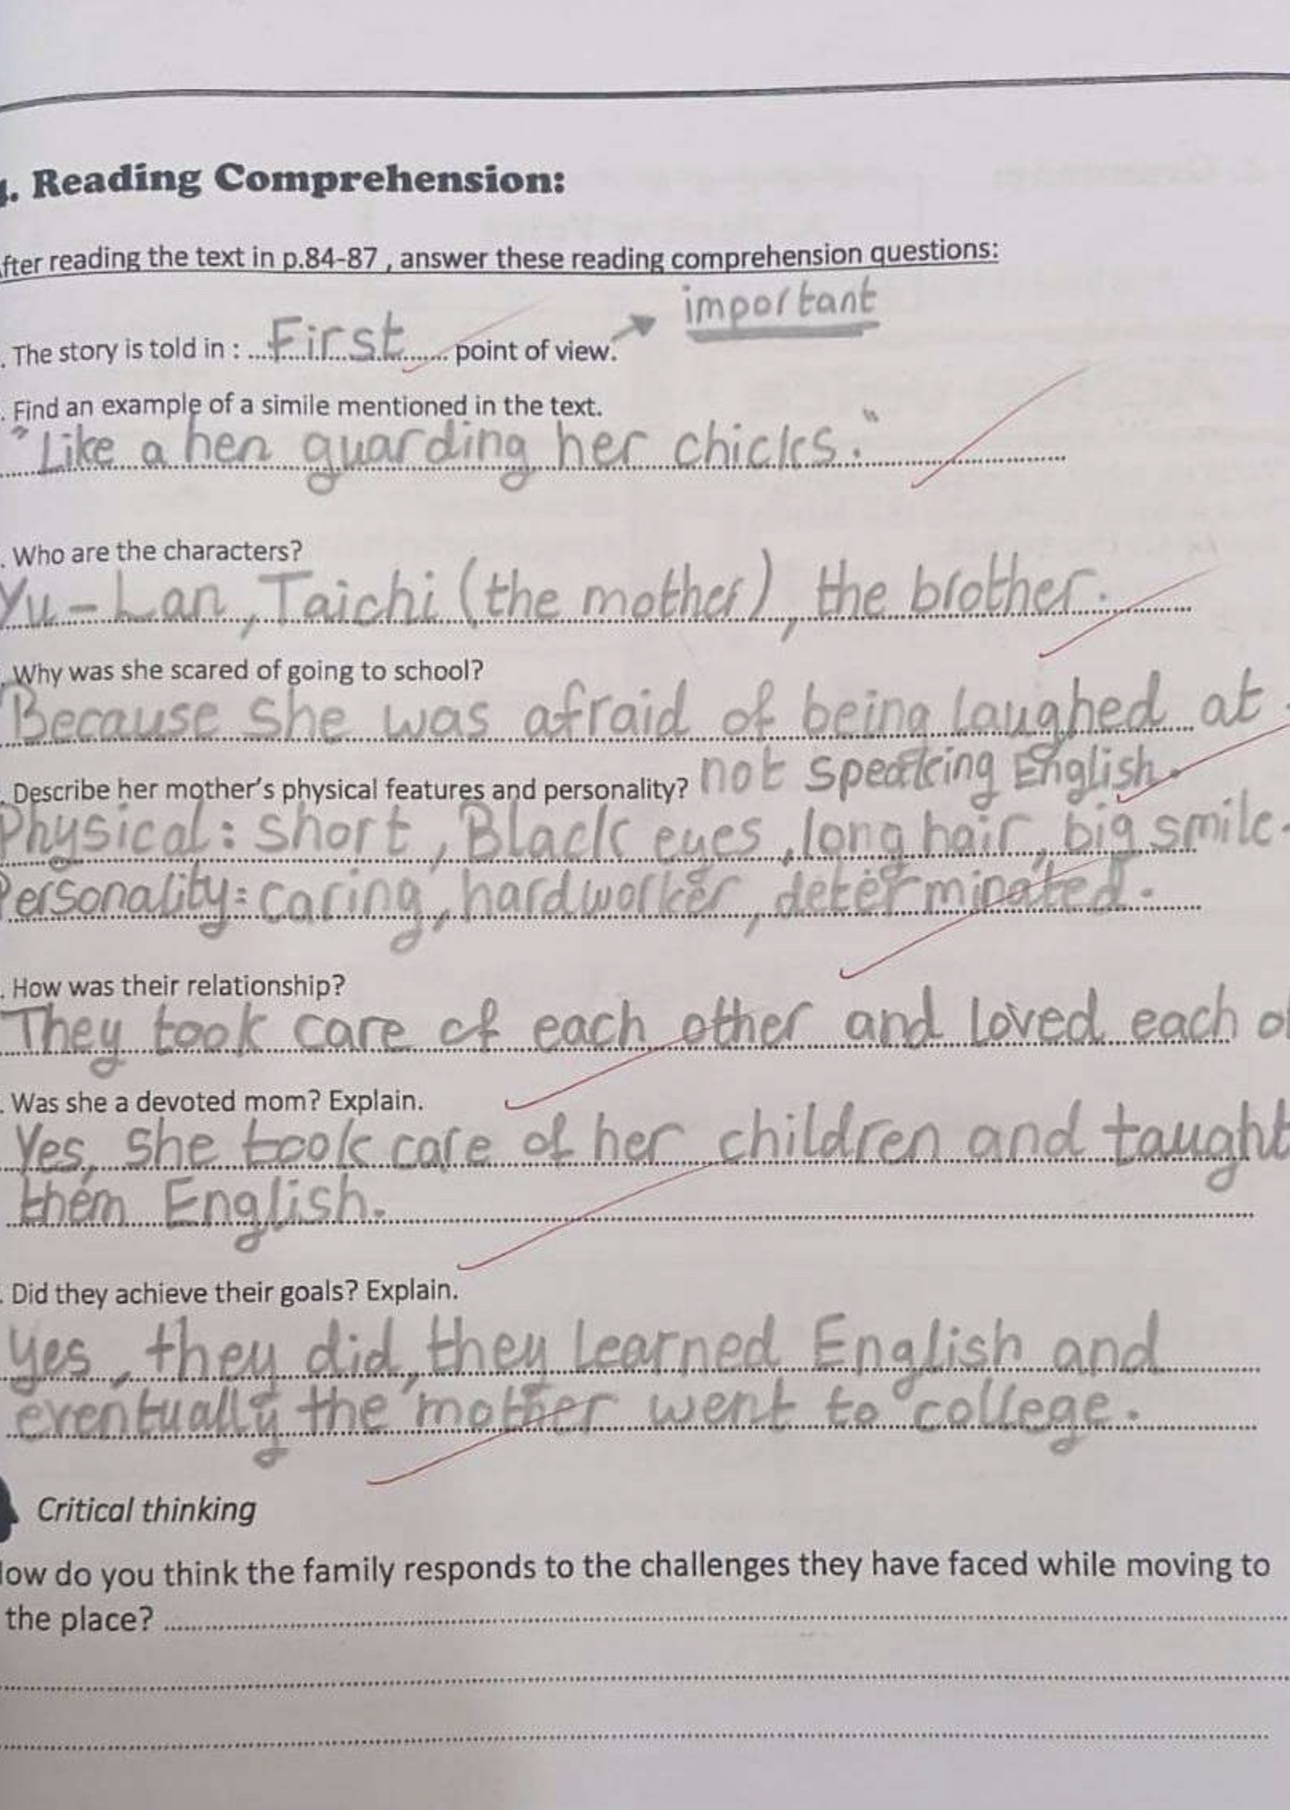 . Reading Comprehension:
fter reading the text in p.84-87 , answer these reading comprehension questions:
important
. The story is told in : ....First....... point of view.
. Find an example of a simile mentioned in the text.
"Like a hen guarding her chicks."
. Who are the characters?
Yu-Lan, Taichi (the mother), the brother.
. Why was she scared of going to school?
Because she was afraid of being laughed at
not speaking English.
. Describe her mother's physical features and personality?
Physical: short, Black eyes, long hair, big smile.
Personality: caring, hardworker, determinated.
. How was their relationship?
They took care of each other and loved each o
. Was she a devoted mom? Explain.
Yes, she took care of her children and taught
them English.
. Did they achieve their goals? Explain.
yes, they did, they learned English and
eventually the mother went to college.
Critical thinking
ow do you think the family responds to the challenges they have faced while moving to
the place?